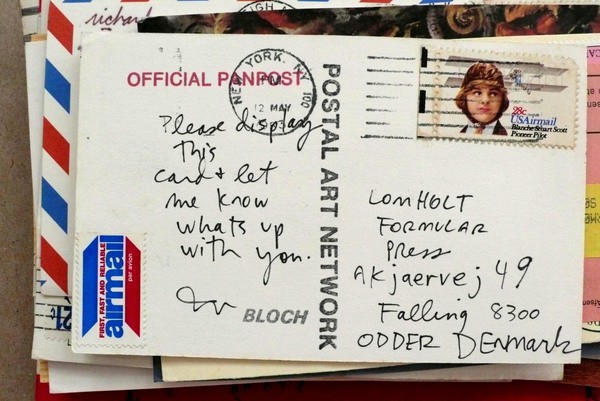 richard
OFFICIAL PANPOST
NEW YORK, NY 100
PM
12 MAY
Please display
this
card & let
me know
whats up
with you.
BLOCH
FIRST, FAST AND RELIABLE
airmail
par avion
POSTAL ART NETWORK
28c
USAirmail
Blanche Stuart Scott
Pioneer Pilot
LOMHOLT
FORMULAR
PRESS
AKjaervej 49
Falling 8300
ODDER DENmark